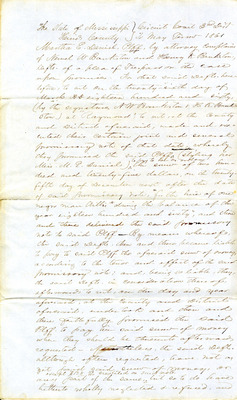 The State of Mississippi } Circuit Court 3rd Dist
Hinds County } To May Term 1861
Martha E. Daniel Plff by attorney complains
of Newel N. Bankston & Henry R. Bankston
defts of a plea of trespass on the case
upon promises. In that said defts here-
tofore to wit on the twenty sixth day of
March AD eighteen hundred and sixty
by the signature N. W. Bankston & H. R. Banks
ton, at Raymond to wit in the county
and District aforesaid, made and exe-
cuted their certain joint and several
promissory note of that date, whereby
they promised the said Plff
M. E. Daniel to pay to her hun
dred and seventy five dollars on the twenty
fifth day of december next after the date
of said promissory note for the hire of one
negro man during the balance of the
year eighteen hundred and sixty and then
and there delivered the said promissory
note to the said Plff. By means whereof
the said defts then and there became liable
to pay to said Plff the aforesaid sum of money
according to the tenor and effect of the said
promissory note; and being so liable, they
the said defts in consideration thereof
afterwards to wit on the day and year
aforesaid, at the county and district
aforesaid, undertook and then and
there faithfully promised the said
Plff to pay the said sum of money
when they should be thereunto afterwards
requested. Nevertheless the said defts
although often requested, have not as
yet paid the said sum of money or
any part of the same, but so to do have
hitherto wholly neglected & refused, and